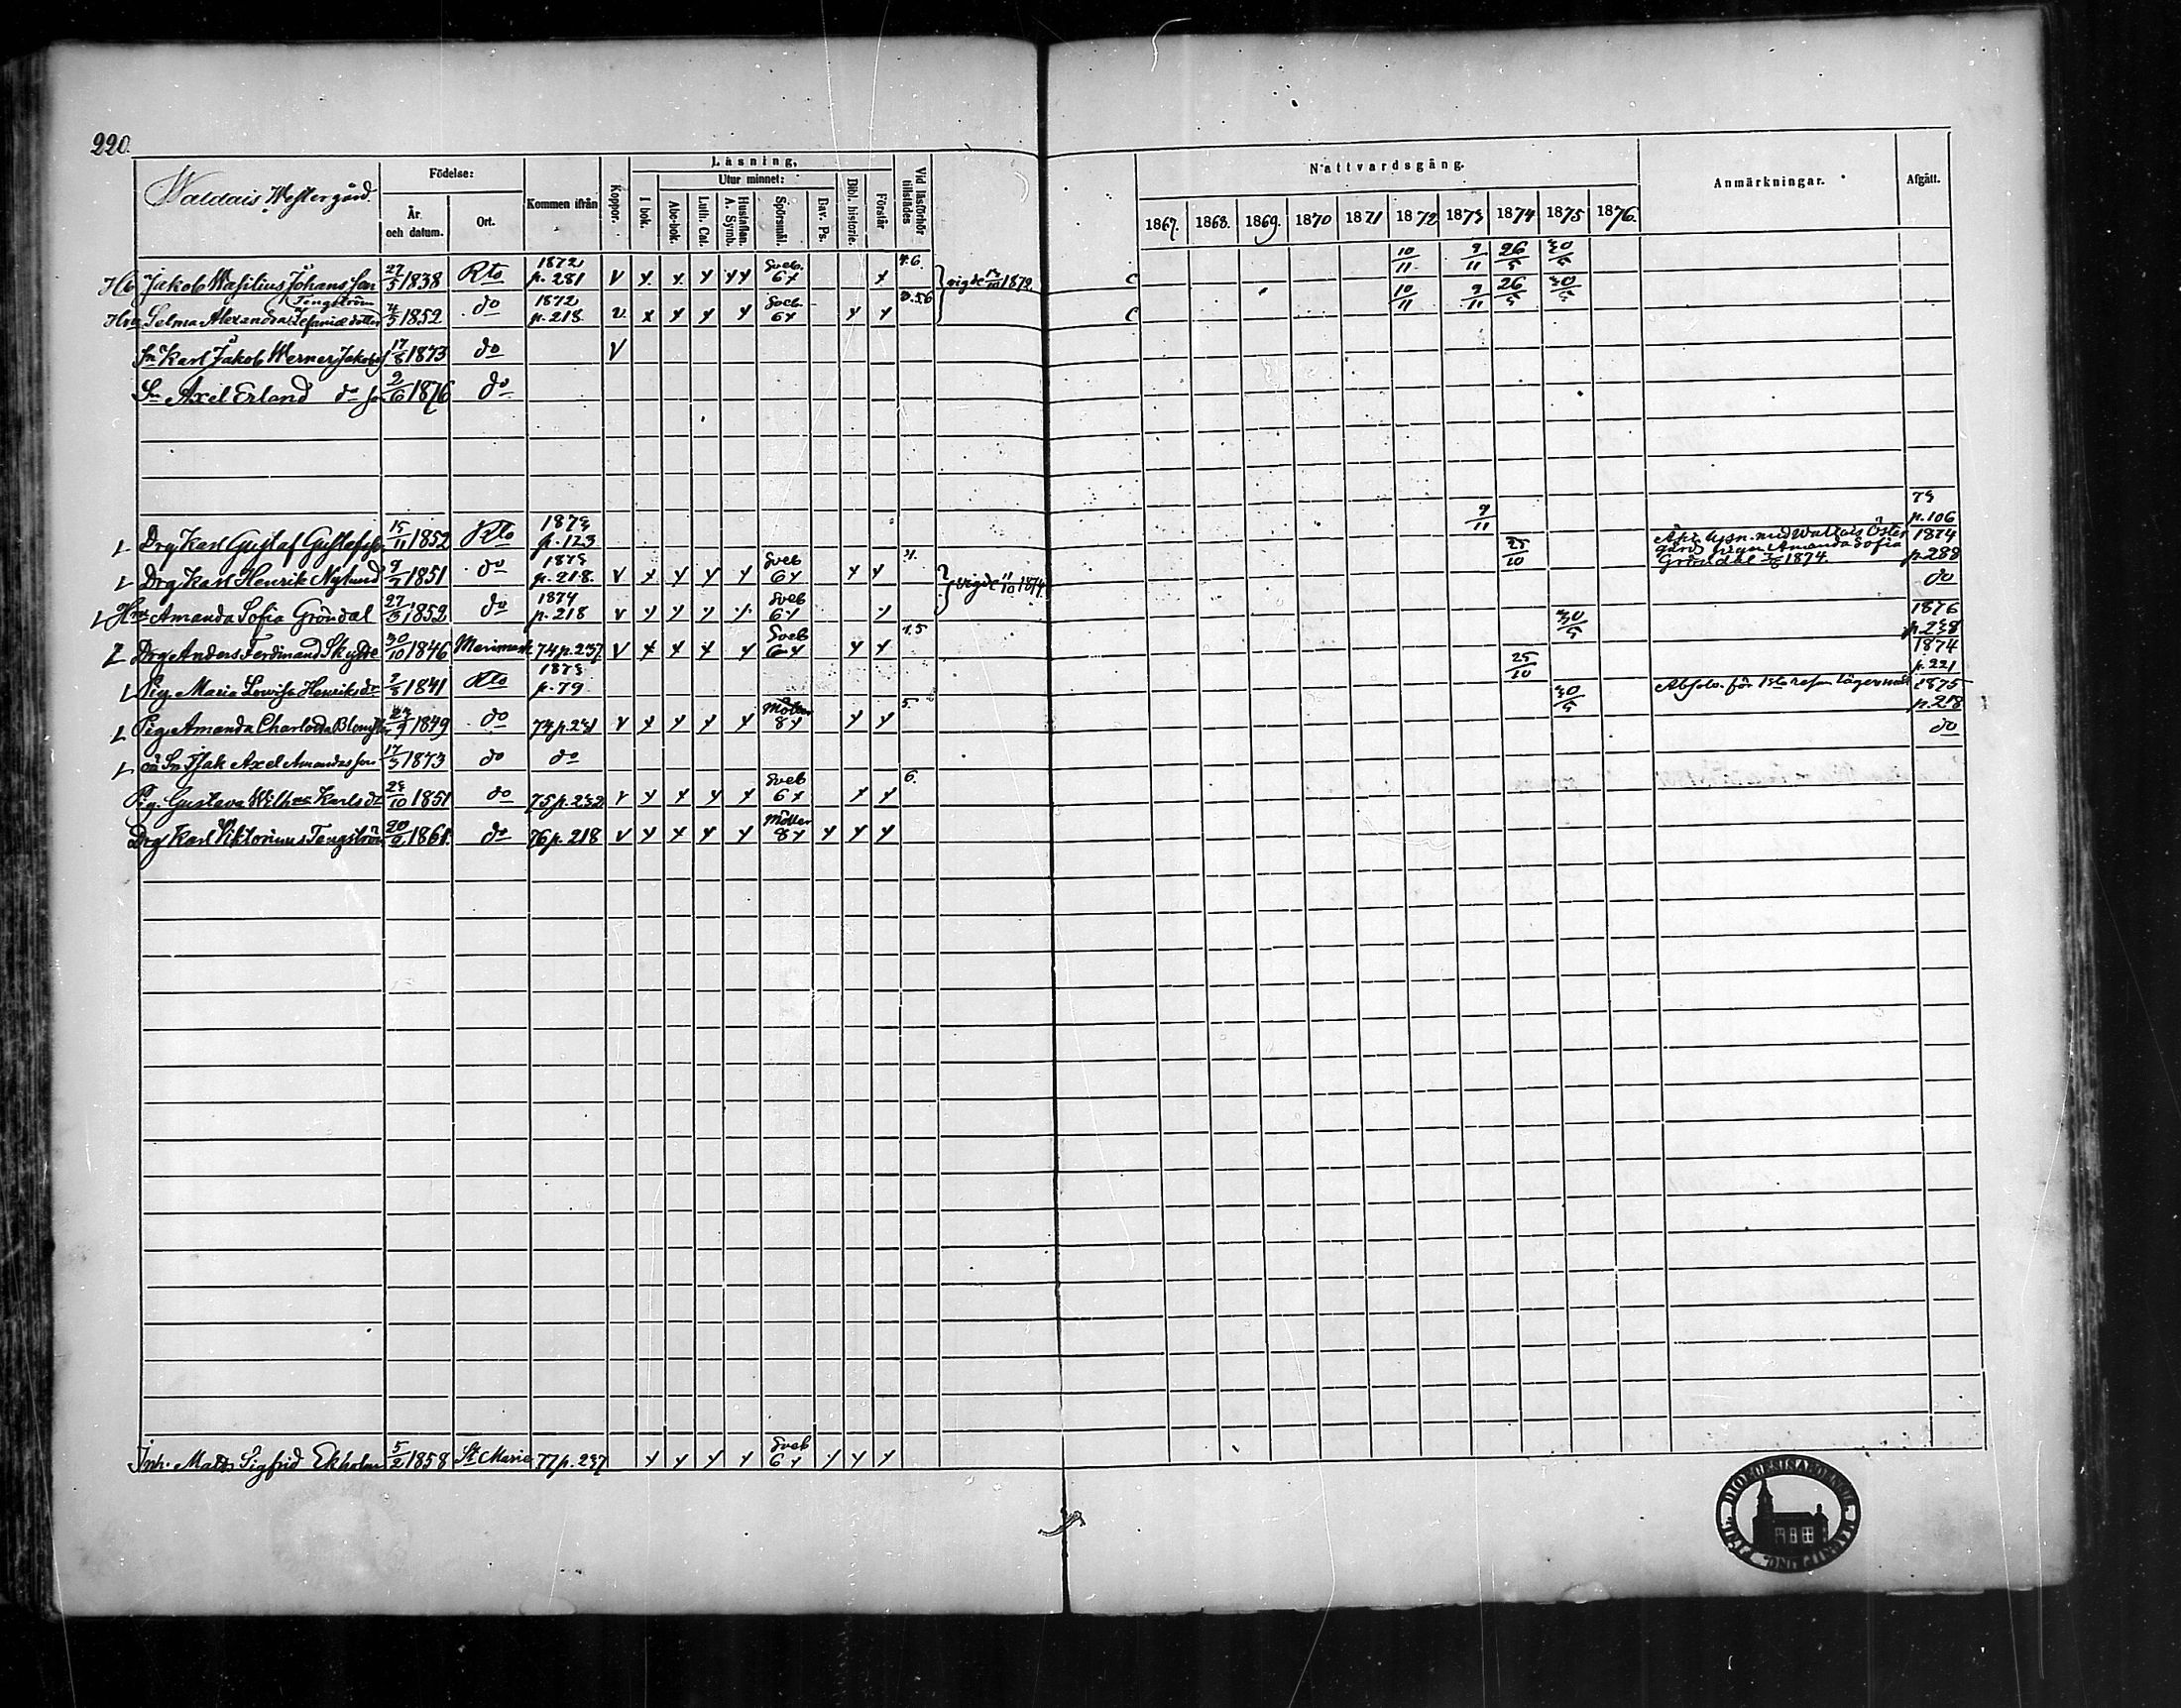 220.
Waldais Westergård.
Födelse:
År och datum.
Ort.
Kommen ifrån
Koppor.
Läsning,
I bok.
Utur minnet:
Abc-bok.
Luth. Cat.
Hustaflan. A. Symb.
Spörsmål.
Dav. Ps.
Bibl. historie.
Förstår
Vid läsförhör tillstädes
Nattvardsgång.
1867. 1868. 1869. 1870 1871 1872 1873 1874 1875 1876.
Anmärkningar.
Afgått.
Jakob Wasilius Johansson 27/5 1838 Kto 1872 p. 281 V Sveb. 6 4.6. vigde 1872. C 10/11 9/11 26/5 30/5
Tengström
Selma Alexandra 1852 do 1872 p. 218 v Sveb 6 C 10/11 9/11 26/5 30/5
Sn Karl Jakob Werner Jakobs 17/8 1873 do V
Sn Axel Erland do 2/6 1876 do
Drg Karl Gustaf Gustafsson 15/11 1852 Kto 1873 p. 123 9/11 73 p. 106
Drg Karl Henrik Nylund 9/7 1851 do 1873 p. 218. v Sveb 6 4. vigde 11/10 1874. 25/10 lysn. med Wallais Öster gård pigan Amanda Sofia Gröndal 1874. 1874 p. 288
Amanda Sofia Gröndal 27/5 1852 do 1874 p. 218 v Sveb 6 do
Drg Anders Ferdinand Skytte 30/10 1846 Merimask 74 p. 237 V Sveb 6 4.5 30/5 1876 p. 238
Pig. Maria Lovisa Henriksdr 1841 Kto 1873 p. 79 25/10 1874 p. 221
Pig. Amanda Charlotta 1849 do 74 p. 231 v Möller 8 5. 30/5 Absolv. för 1sta resan lägersmål 1875 p. 218
Sn Isak Axel Amandasson 17/3 1873 do do do
Pig. Gustava Karlsdr 23/10 1851 do 75 p. 232 v Sveb 6 6.
Drg Karl Viktorinus Tengström 20/2 1861. do 76 p. 218 v Möller 8
Inh. Matts Sigfrid Ekholm 5/2 1858 St Marie 77 p. 237 Sveb 6